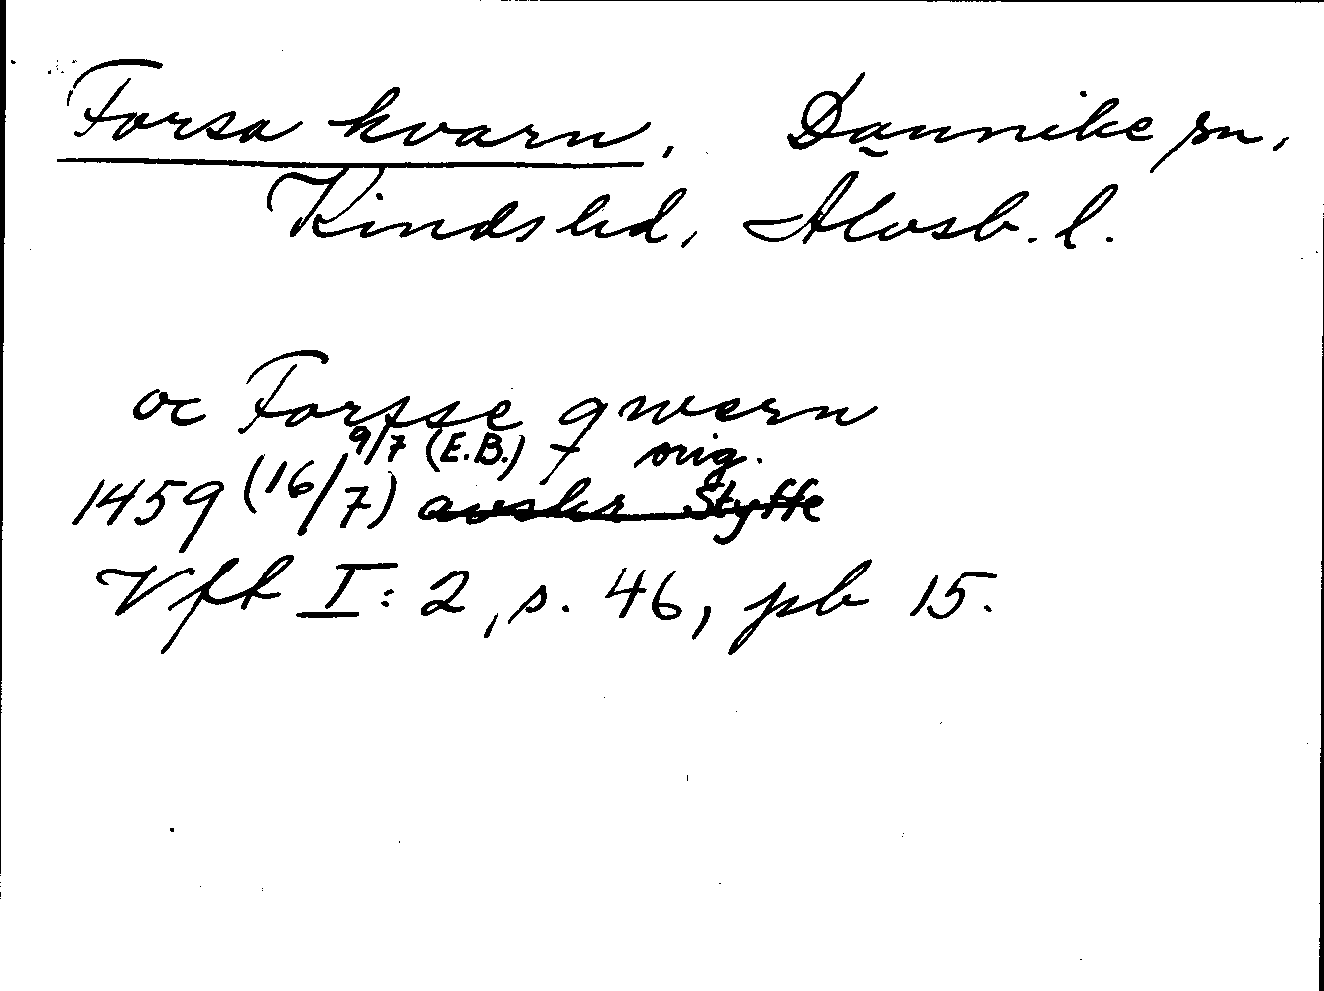 Forsa kvarn, Dannike sn,
Kinds hd, Älvsb. l.
oc Forsse qwern
9/7 (E.B.) orig.
1459 (16/7) avskr Styffe
Vft I:2, s. 46, pb 15.